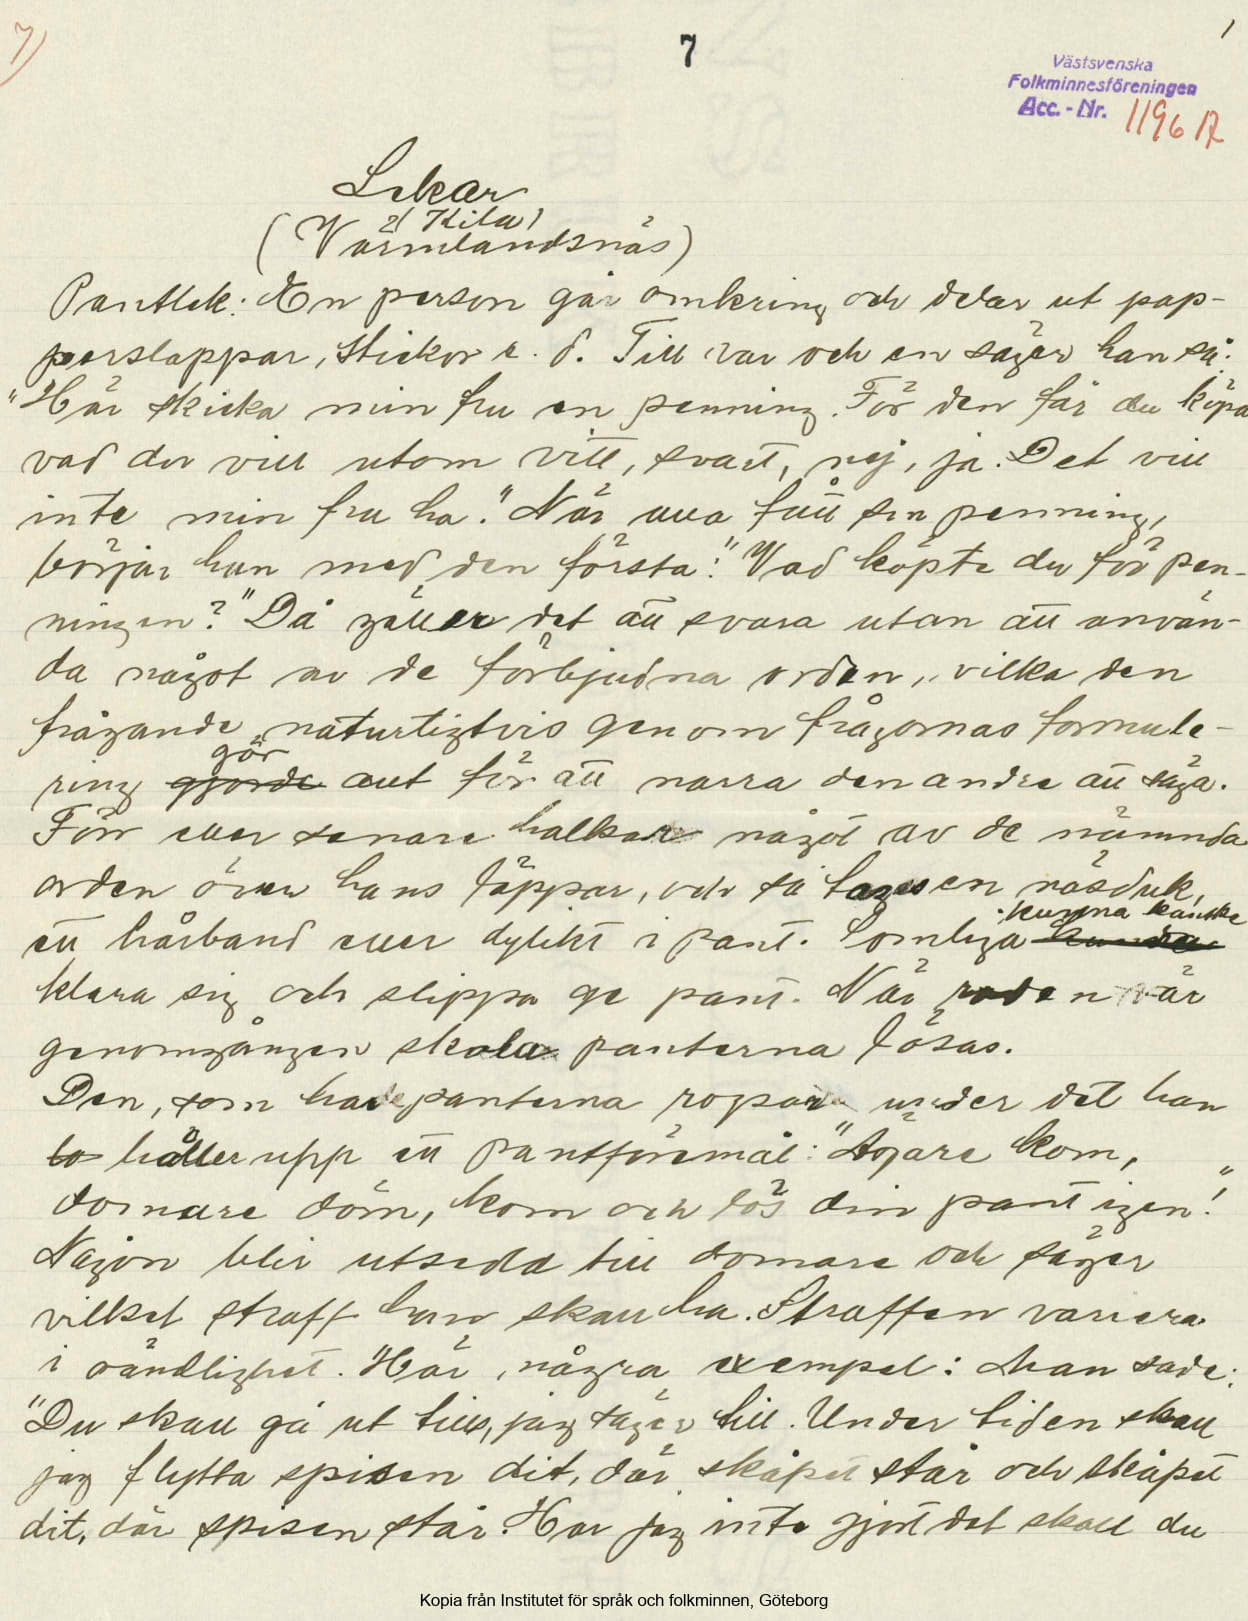 7)
7
1
Västsvenska
Folkminnesföreningen
Acc.-Nr. 1196 A
Lekar
(Kila)
(Värmlandsnäs)
Pantlek: En person går omkring och delar ut pap-
perslappar, stickor e. d. Till var och en säger han så:
"Här skicka min fru en penning. För den får du köpa
vad du vill utom vitt, svart, nej, ja. Det vill
inte min fru ha." När alla fått sin penning,
börjar han med den första: "Vad köpte du för pen-
ningen?" Då gäller det att svara utan att använ-
da något av de förbjudna orden, vilka den
frågande naturligtvis genom frågornas formule-
gör
ring gjorde allt för att narra den andre att säga.
Förr eller senare halkar något av de nämnda
orden över hans läppar, och så tages en näsduk,
kunna kanske
ett hårband eller dylikt i pant. Somliga
klara sig och slippa ge pant. När raden är
genomgången skola panterna lösas.
Den, som har panterna ropar under det han
håller upp ett pantföremål: "Ägare kom,
domare döm, kom och lös din pant igen!"
Någon blir utsedd till domare och säger
vilket straff han skall ha. Straffen variera
i oändlighet. Här några exempel: Man sade:
"Du skall gå ut tills jag säger till. Under tiden skall
jag flytta spisen dit, där skåpet står och skåpet
dit, där spisen står. Har jag inte gjort det skall du
Kopia från Institutet för språk och folkminnen, Göteborg